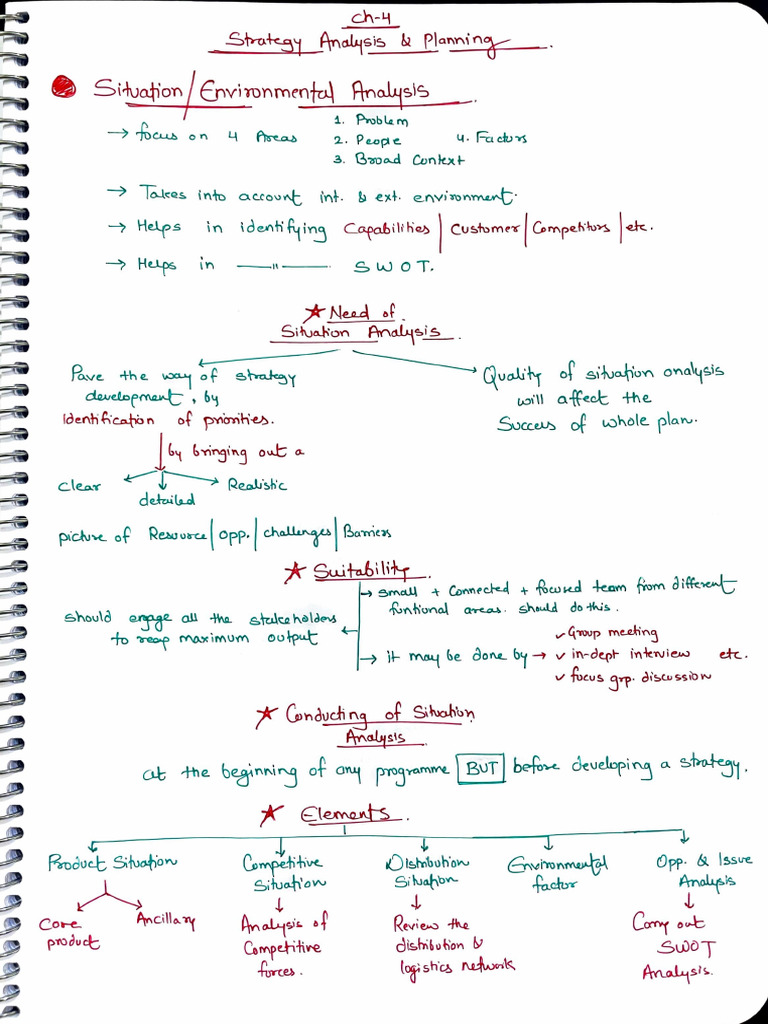 Ch-4
Strategy Analysis & Planning.
Situation/Environmental Analysis.
→ focus on 4 Areas
1. Problem
2. People 4. Factors
3. Broad Context
→ Takes into account int. & ext. environment.
→ Helps in identifying Capabilities | Customer | Competitors | etc.
→ Helps in —— " —— SWOT.
★ Need of
Situation Analysis.
Pave the way of strategy
development, by
Identification of priorities.
by bringing out a
clear
detailed
Realistic
picture of Resource | opp. | challenges | Barriers
Quality of situation analysis
will affect the
Success of whole plan.
★ Suitability.
→ small + connected + focused team from different
funtional areas. should do this.
should engage all the stakeholders
to reap maximum output
→ it may be done by → ✓ Group meeting
✓ in-dept interview etc.
✓ focus grp. discussion
★ Conducting of Situation
Analysis.
at the beginning of any programme BUT before developing a strategy.
★ Elements.
Product Situation
Core
product
Ancillary
Competitive
Situation
Analysis of
Competitive
forces.
Distribution
Situation
Review the
distribution &
logistics network
Environmental
factor
Opp. & Issue
Analysis
Carry out
SWOT
Analysis.